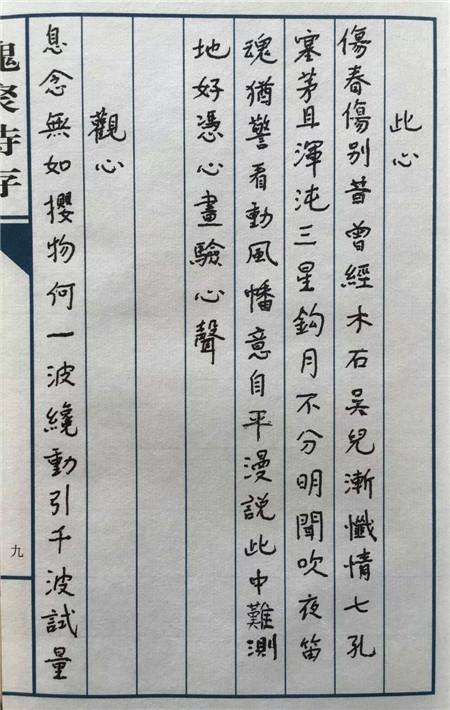 此心
傷春傷別昔曾經木石吳兒漸懺情七孔
塞茅且渾沌三星鈎月不分明聞吹夜笛
魂猶警看動風幡意自平漫說此中難測
地好憑心畫驗心聲
觀心
息念無如攖物何一波纔動引千波試量
聚诗存
九